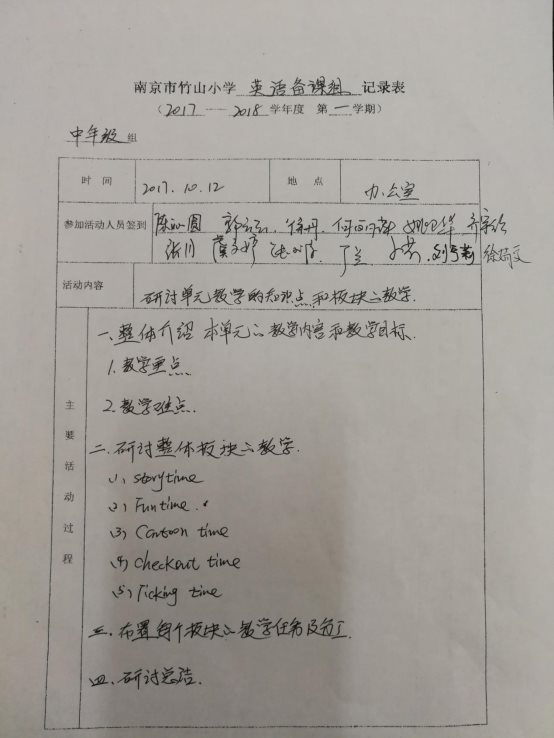 南京市竹山小学 英语备课组 记录表
(2017 —— 2018 学年度 第 一 学期)
中年级 组
时 间 2017.10.12 地 点 办公室
参加活动人员签到 徐丹
丁兰
活动内容 研讨单元教学的知识点和板块の教学.
主要活动过程
一、整体介绍 本单元の教学内容和教学目标.
1.教学重点
2.教学难点.
二、研讨整体板块の教学.
(1) storytime
(2) Fun time.
(3) Cartoon time
(4) Checkout time
(5) Ticking time
三、布置每个板块の教学任务及分工.
四、研讨总结.